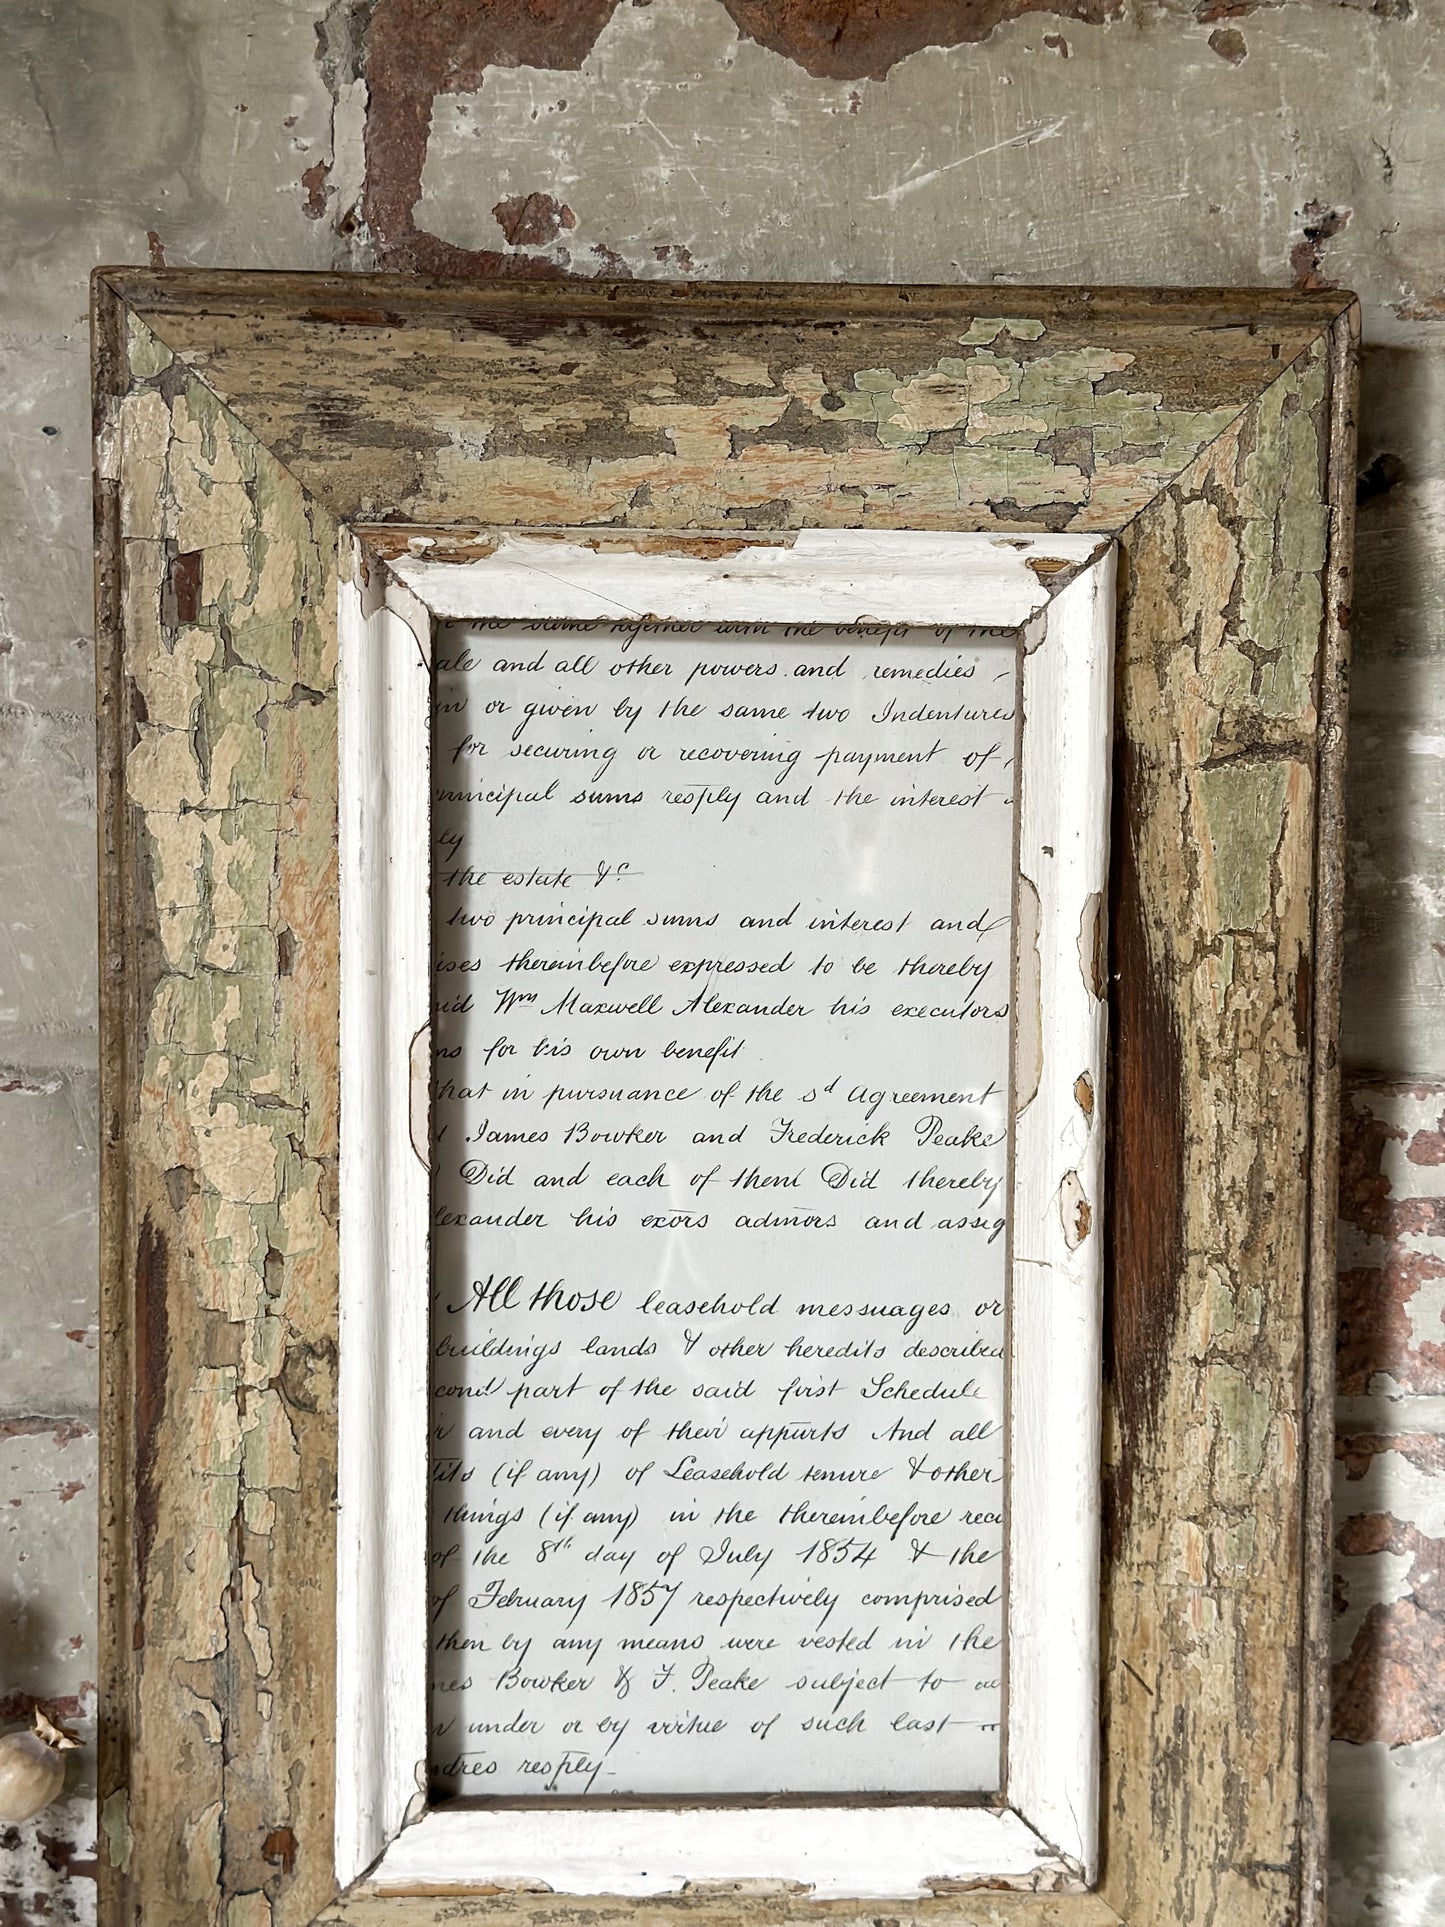 the same together with the benefit of the
ale and all other powers and remedies
in or given by the same two Indentures
for securing or recovering payment of
principal sums resply and the interest
ly
the estate &c
two principal sums and interest and
ises thereinbefore expressed to be thereby
id Wm Maxwell Alexander his executors
ns for his own benefit
that in pursuance of the sd Agreement
d James Bowker and Frederick Peake
Did and each of them Did thereby
lexander his exors admors and assig
All those leasehold messuages or
buildings lands & other heredits described
cond part of the said first Schedule
r and every of their appurts And all
dits (if any) of Leasehold tenure & other
things (if any) in the thereinbefore reci
of the 8th day of July 1854 & the
of February 1857 respectively comprised
then by any means were vested in the
mes Bowker & F. Peake subject to
n under or by virtue of such last
ndres resply